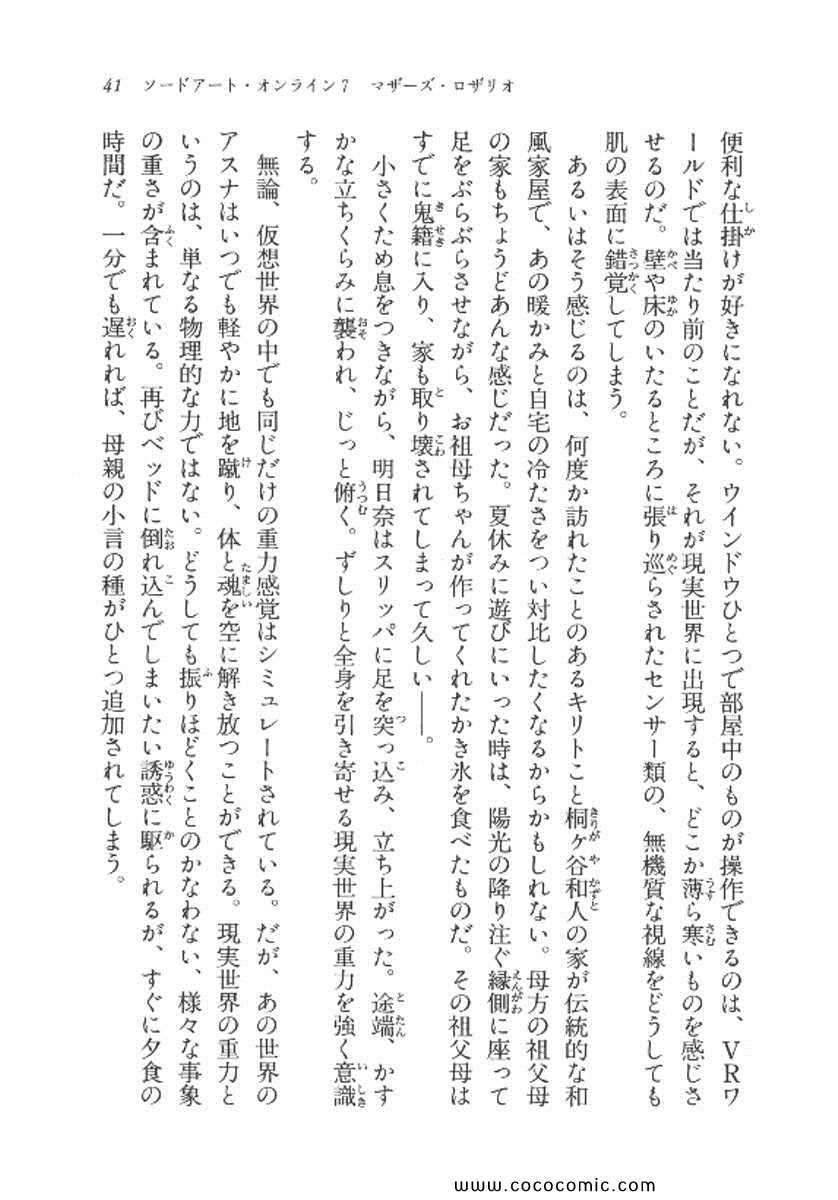 41　ソードアート・オンライン7　マザーズ・ロザリオ
便利な仕掛けが好きになれない。ウインドウひとつで部屋中のものが操作できるのは、ＶＲワ
ールドでは当たり前のことだが、それが現実世界に出現すると、どこか薄ら寒いものを感じさ
せるのだ。壁や床のいたるところに張り巡らされたセンサー類の、無機質な視線をどうしても
肌の表面に錯覚してしまう。
　あるいはそう感じるのは、何度か訪れたことのあるキリトこと桐ヶ谷和人の家が伝統的な和
風家屋で、あの暖かみと自宅の冷たさをつい対比したくなるからかもしれない。母方の祖父母
の家もちょうどあんな感じだった。夏休みに遊びにいった時は、陽光の降り注ぐ縁側に座って
足をぶらぶらさせながら、お祖母ちゃんが作ってくれたかき氷を食べたものだ。その祖父母は
すでに鬼籍に入り、家も取り壊されてしまって久しい――。
　小さくため息をつきながら、明日奈はスリッパに足を突っ込み、立ち上がった。途端、かす
かな立ちくらみに襲われ、じっと俯く。ずしりと全身を引き寄せる現実世界の重力を強く意識
する。
　無論、仮想世界の中でも同じだけの重力感覚はシミュレートされている。だが、あの世界の
アスナはいつでも軽やかに地を蹴り、体と魂を空に解き放つことができる。現実世界の重力と
いうのは、単なる物理的な力ではない。どうしても振りほどくことのかなわない、様々な事象
の重さが含まれている。再びベッドに倒れ込んでしまいたい誘惑に駆られるが、すぐに夕食の
時間だ。一分でも遅れれば、母親の小言の種がひとつ追加されてしまう。
www.cococomic.com